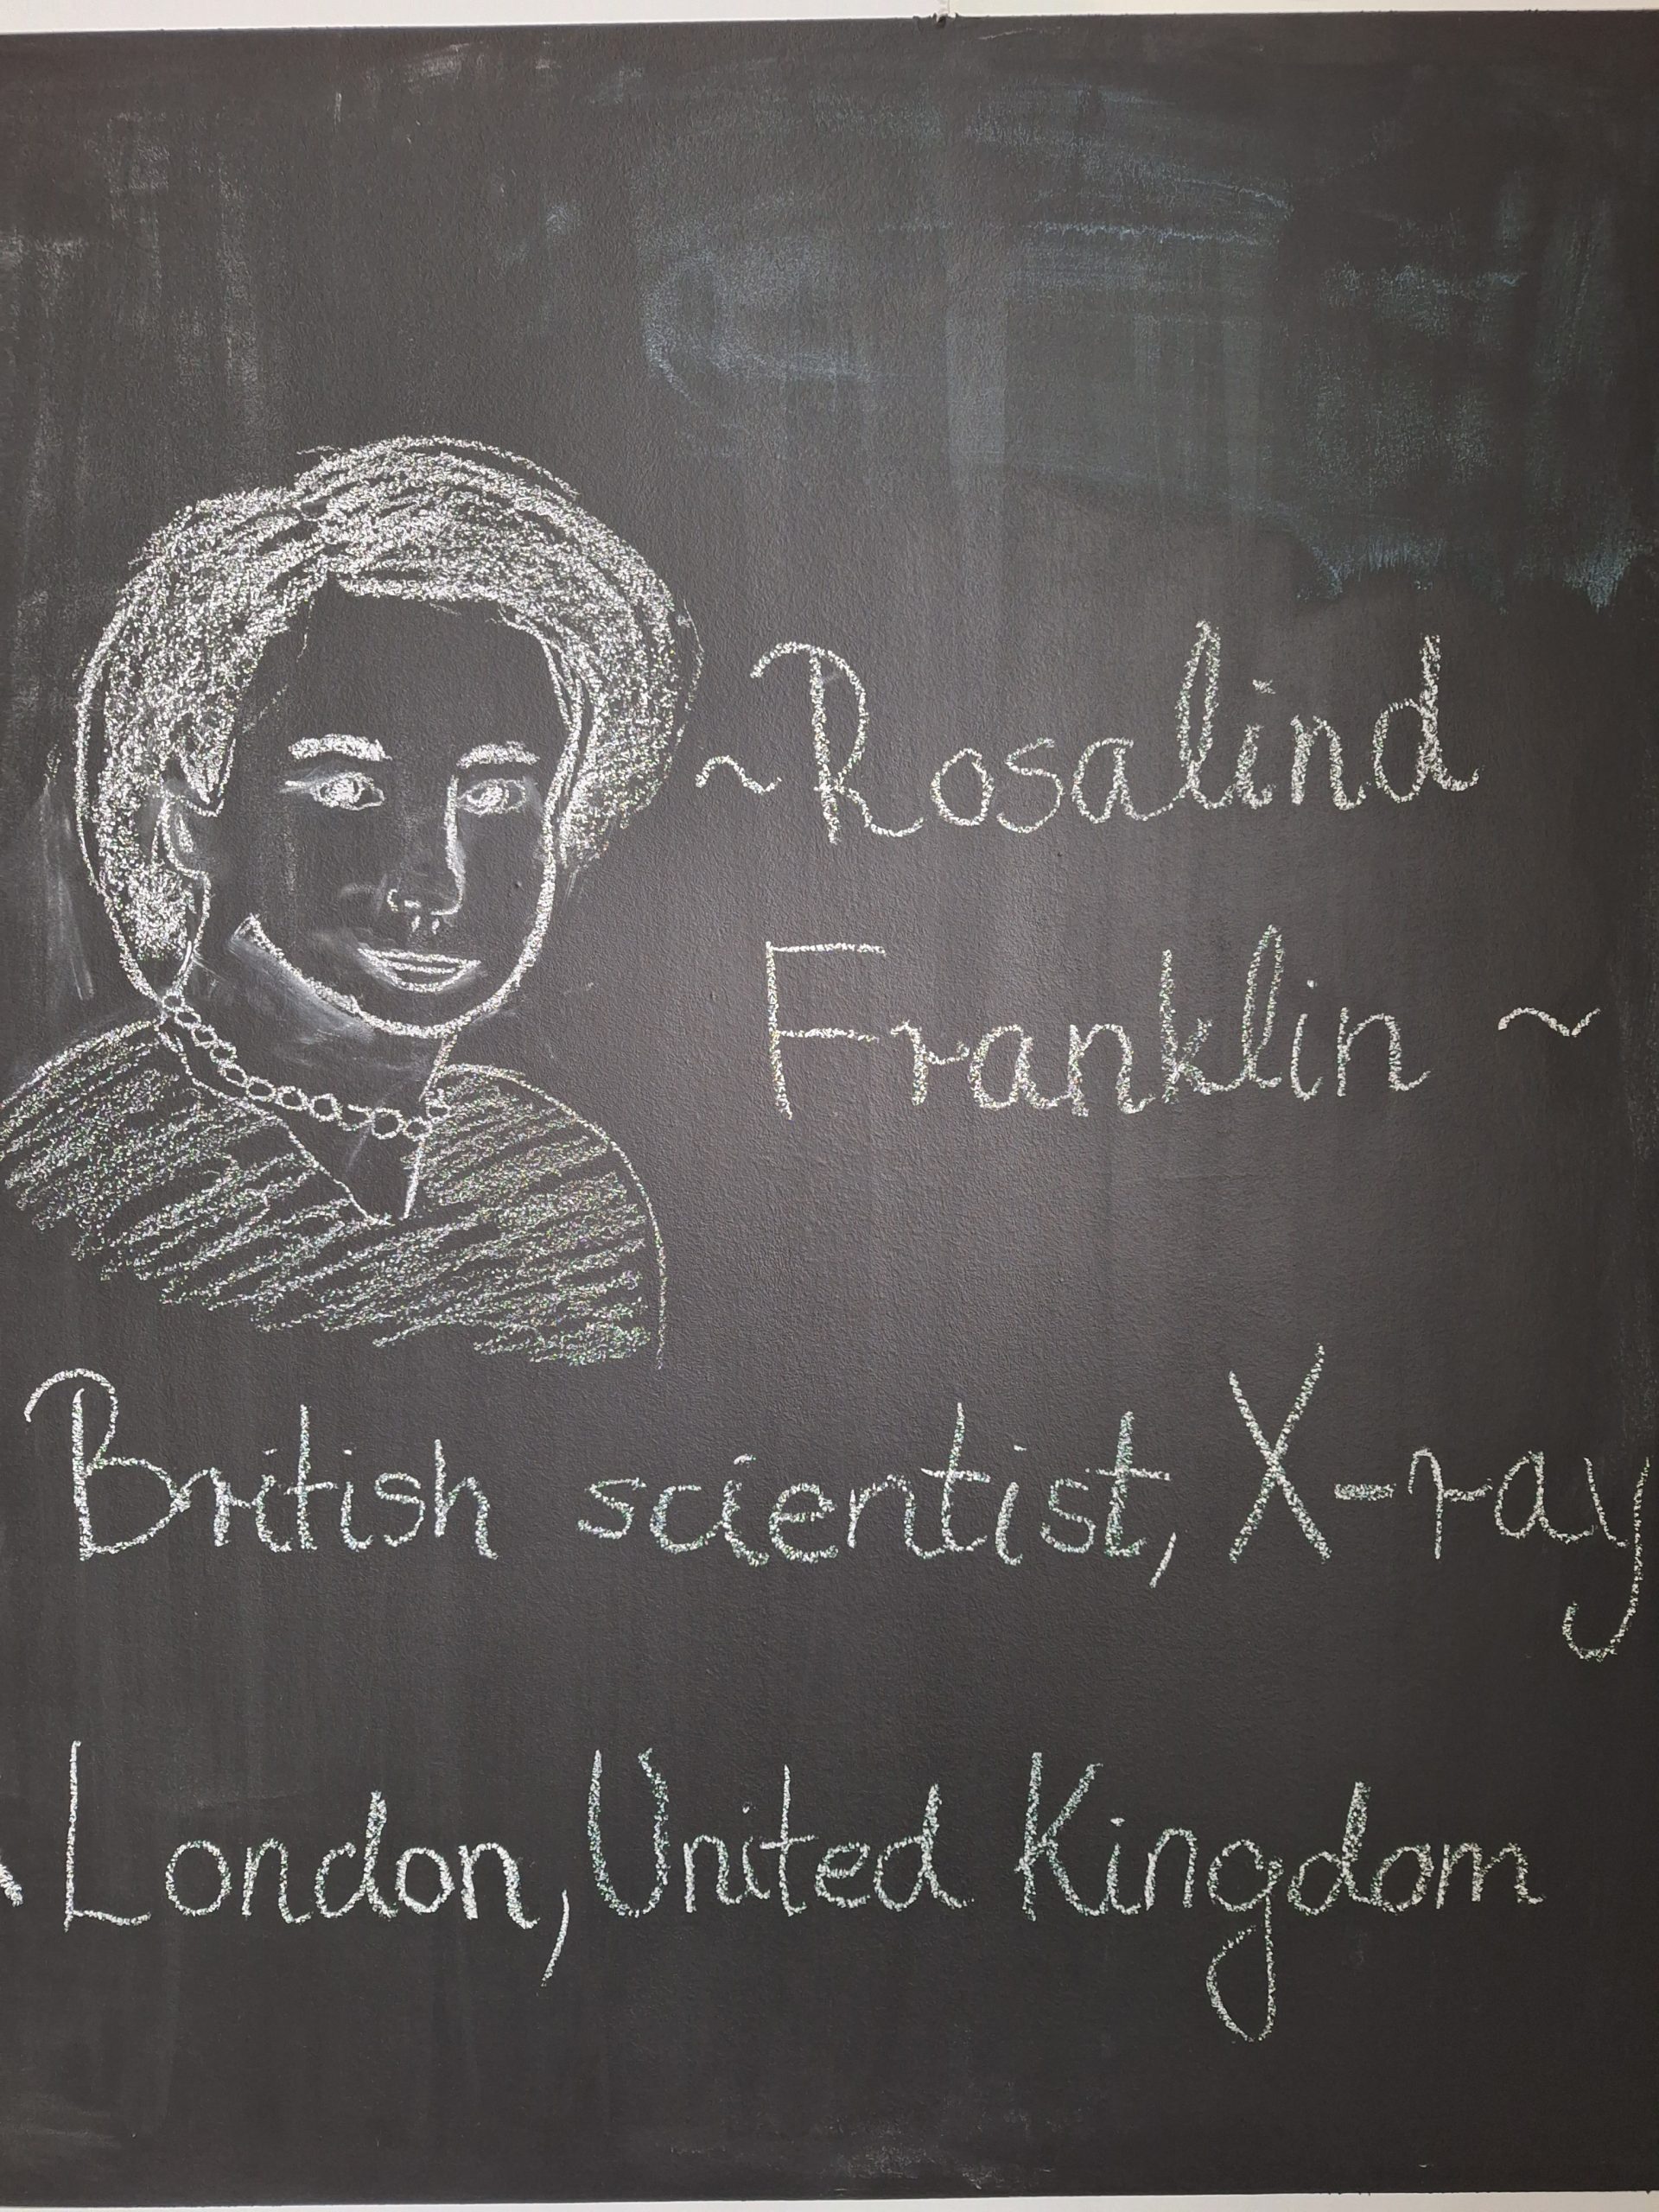 ~Rosalind
Franklin~
British scientist, X-ray
London, United Kingdom